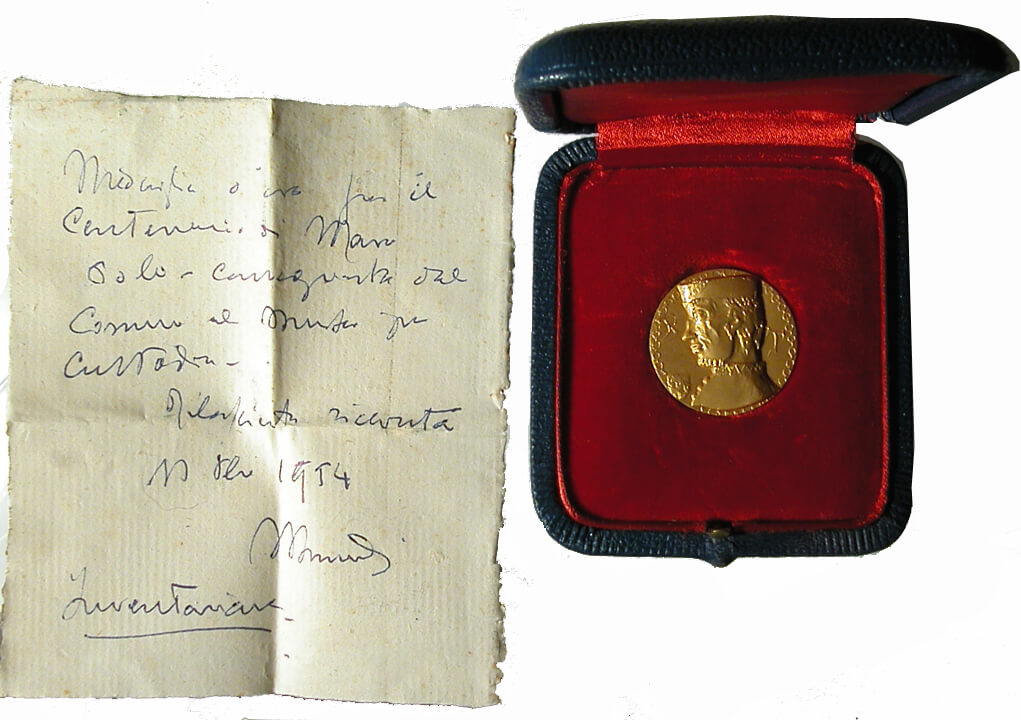 Medaglia d'oro per il
Centenario di Marco
Polo - consegnata dal
Comune al Museo per
Custodia -
Rilasciata ricevuta
13 Dbr 1954
Inventariare